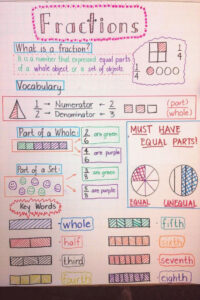 Fractions
What is a fraction?
It is a number that expresses equal parts
of a whole object or a set of objects.
1/4
1/4
Vocabulary
1/2 → Numerator ← 2/3 (part)
→ Denominator ← (whole)
Part of a Whole:
2/6 are green
4/6 are purple
Part of a Set:
are green
are purple
MUST HAVE
EQUAL PARTS!
EQUAL UNEQUAL
Key Words
whole
half
third
fourth
fifth
sixth
seventh
eighth